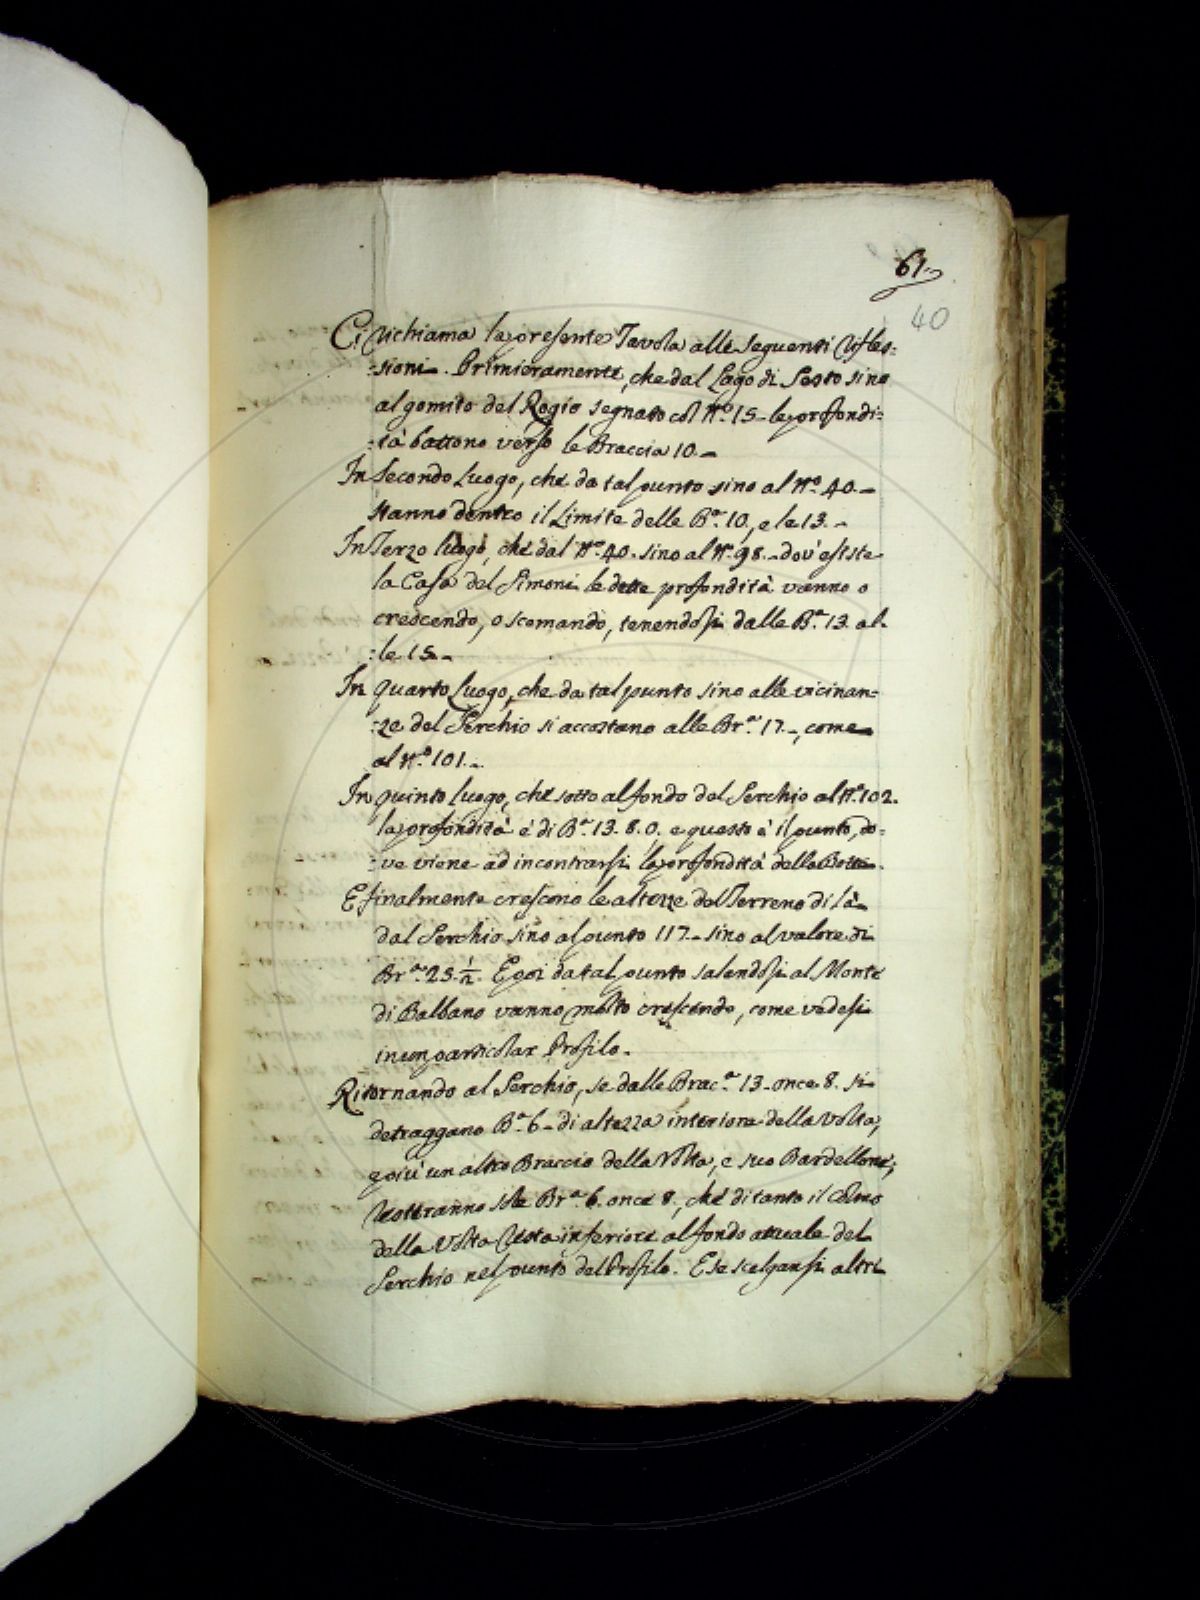 61.
40
Ci richiama la presente Tavola alle seguenti rifles:
:sioni. Primieramente, che dal Lago di Sesto sino
al gomito del Rogio segnato col N.º 15 le profondi:
:tà battono verso le Braccia 10.
In Secondo Luogo, che da tal punto sino al N.º 40.
stanno dentro il Limite delle B.ª 10, e le 13.
In Terzo luogo, che dal N.º 40. sino al N.º 98. dov'esiste
la Casa del Simoni le dette profondità vanno o
crescendo, o scemando, tenendosi dalle B.ª 13. al:
:le 15.
In quarto Luogo, che da tal punto sino alle vicinan:
:ze del Serchio si accostano alle Br.ª 17., come
al N.º 101.
In quinto luogo, che sotto al fondo del Serchio al N.º 102.
la profondità è di B.ª 13. 8. 0. e questo è il punto, do:
:ve viene ad incontrarsi la profondità della Botte.
E finalmente crescono le altezze del Terreno di là
dal Serchio sino al punto 117. sino al valore di
Br.ª 25. ½. E poi da tal punto salendosi al Monte
di Balbano vanno molto crescendo, come vedesi
in un particolar Profilo.
Ritornando al Serchio, se dalle Brac.ª 13. once 8. si
detraggano B.ª 6. di altezza interiore della volta,
e più un altro Braccio della Volta, e suo Bardellone,
resteranno sole Br.ª 6. once 8., che di tanto il colmo
della Volta resta inferiore al fondo attuale del
Serchio nel punto del Profilo. E se scelgansi altri